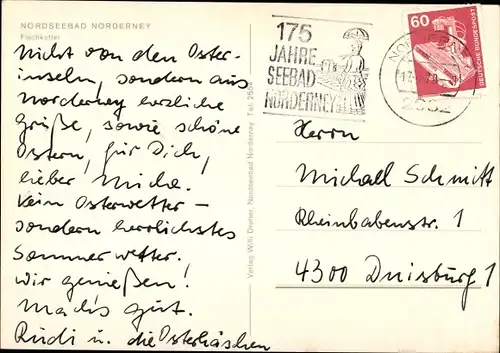 NORDSEEBAD NORDERNEY
Fischkutter
Nicht von den Oster-
inseln, sondern aus
Norderney herzliche
Grüße, sowie schöne
Ostern, für Dich,
lieber Micha.
Kein Osterwetter –
sondern herrlichstes
Sommerwetter.
Wir genießen!
Mach's gut.
Rudi u. die Osterhäschen
Verlag Willi Dreher, Nordseebad Norderney
175
JAHRE
SEEBAD
NORDERNEY
2982
60
DEUTSCHE BUNDESPOST
Herrn
Michael Schmitt
Rheinbabenstr. 1
4300 Duisburg 1